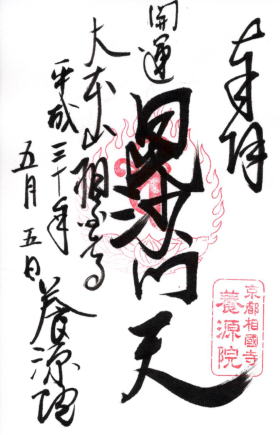 奉拝
開運
毘沙门天
大本山相國寺
平成三十年
五月五日
養源院
京都相國寺
養源院